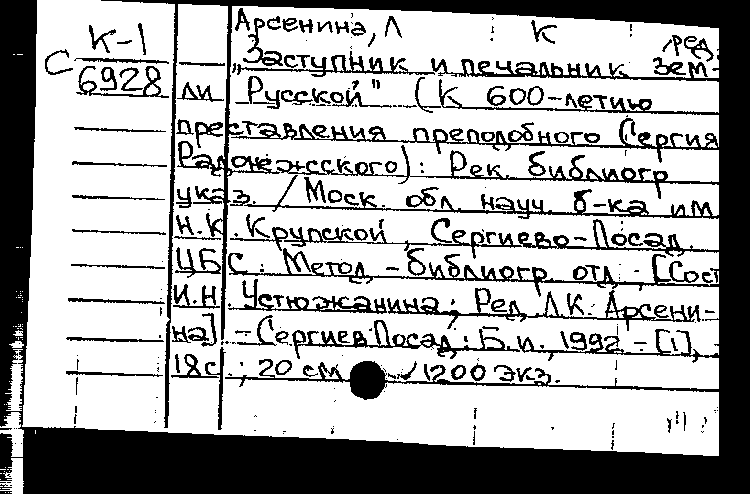 К-1
С 6928
Арсенина, Л К ред.
„Заступник и печальник зем-
ли Русской" (К 600-летию
преставления преподобного Сергия
Радонежсского): Рек. библиогр
указ. / Моск. обл. науч. б-ка им
Н.К. Крупской, Сергиево-Посад.
ЦБС. Метод.-библиогр. отд.; [Сост
И.Н. Устюжанина; Ред. Л.К. Арсени-
на] - Сергиев Посад: Б.и., 1992 - [1],
18с.; 20 см 1200 экз.